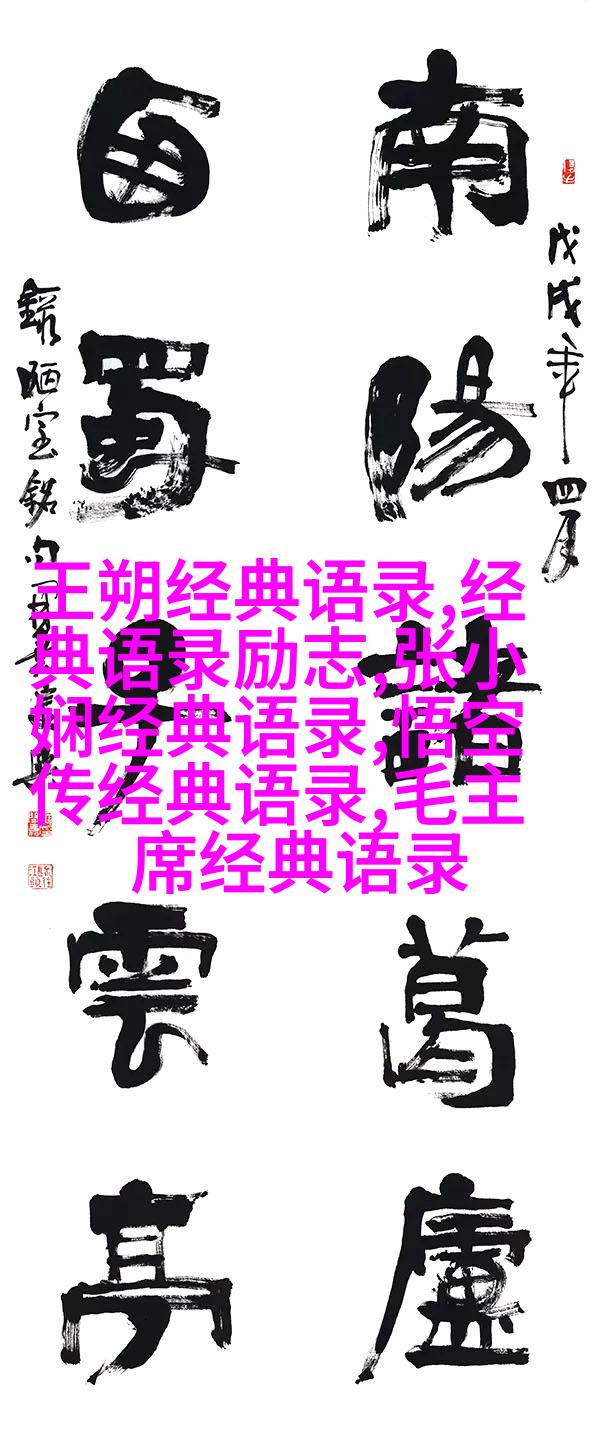 戊戌年四月
南陽諸葛廬
西蜀子雲亭
錄陋室銘句
王朔经典语录,经
典语录励志,张小
娴经典语录,悟空
传经典语录,毛主
席经典语录